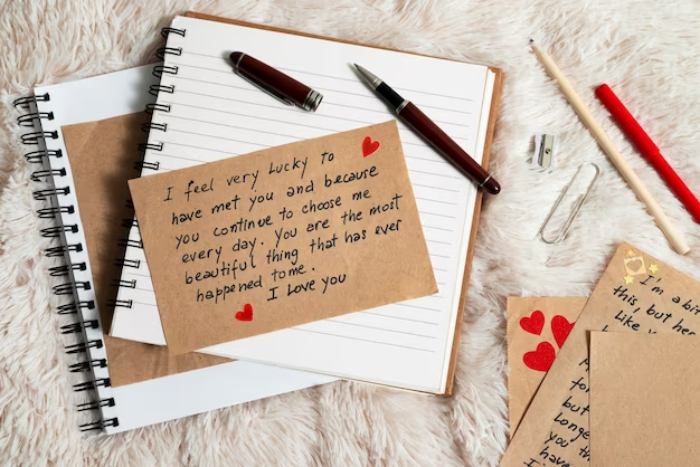 I feel very Lucky to
have met you and because
you continue to choose me
every day. You are the most
beautiful thing that has ever
happened to me.
I Love you
I'm a bit
this, but her
Like
but
Longe
you th